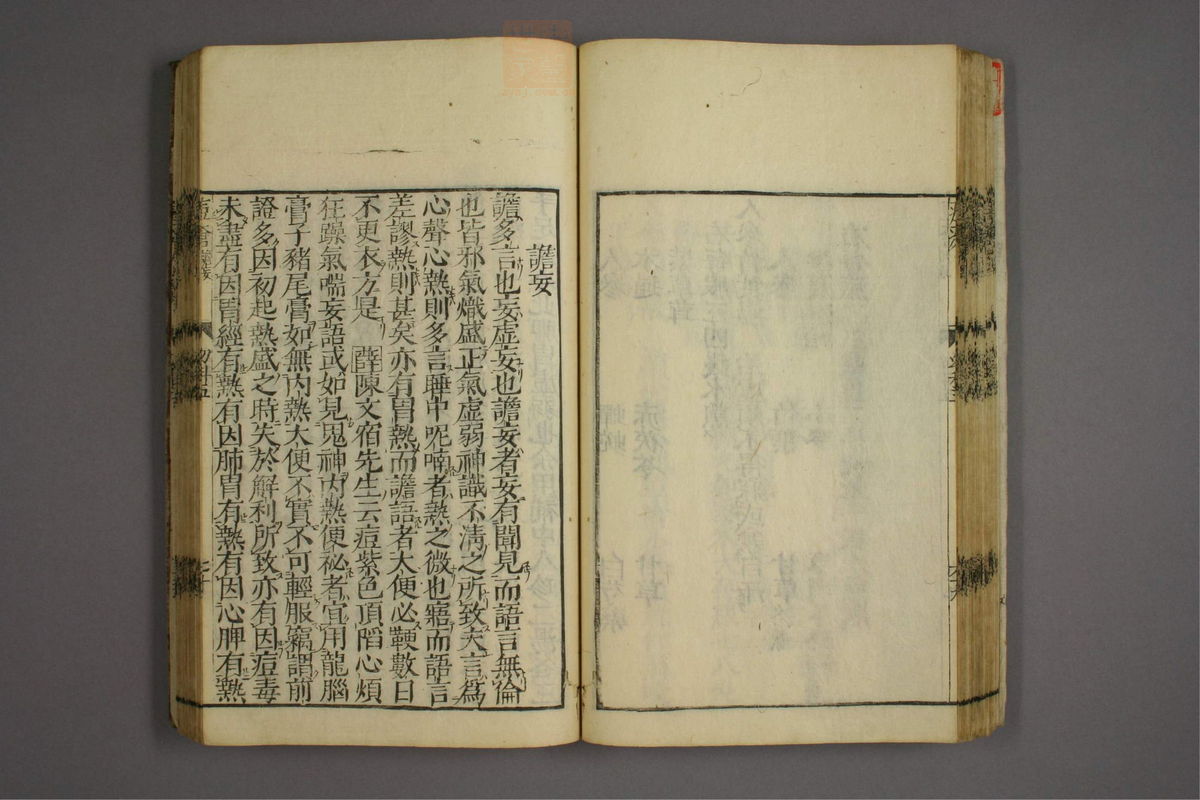 譫妄
譫多言也妄虛妄也譫妄者妄有聞見而語言無倫
也皆邪氣熾盛正氣虛弱神識不淸之所致夫言爲
心聲心熱則多言睡中呢喃者熱之微也寤而語言
差謬熱則甚矣亦有胃熱而譫語者大便必鞕數日
不更衣方是 薛 陳文宿先生云痘紫色頂陷心煩
狂躁氣喘妄語或如見鬼神內熱便祕者宜用龍腦
膏子豬尾膏如無內熱大便不實不可輕服竊謂前
證多因初起熱盛之時失於解利所致亦有因痘毒
未盡有因胃經有熱有因肺胃有熱有因心脾有熱